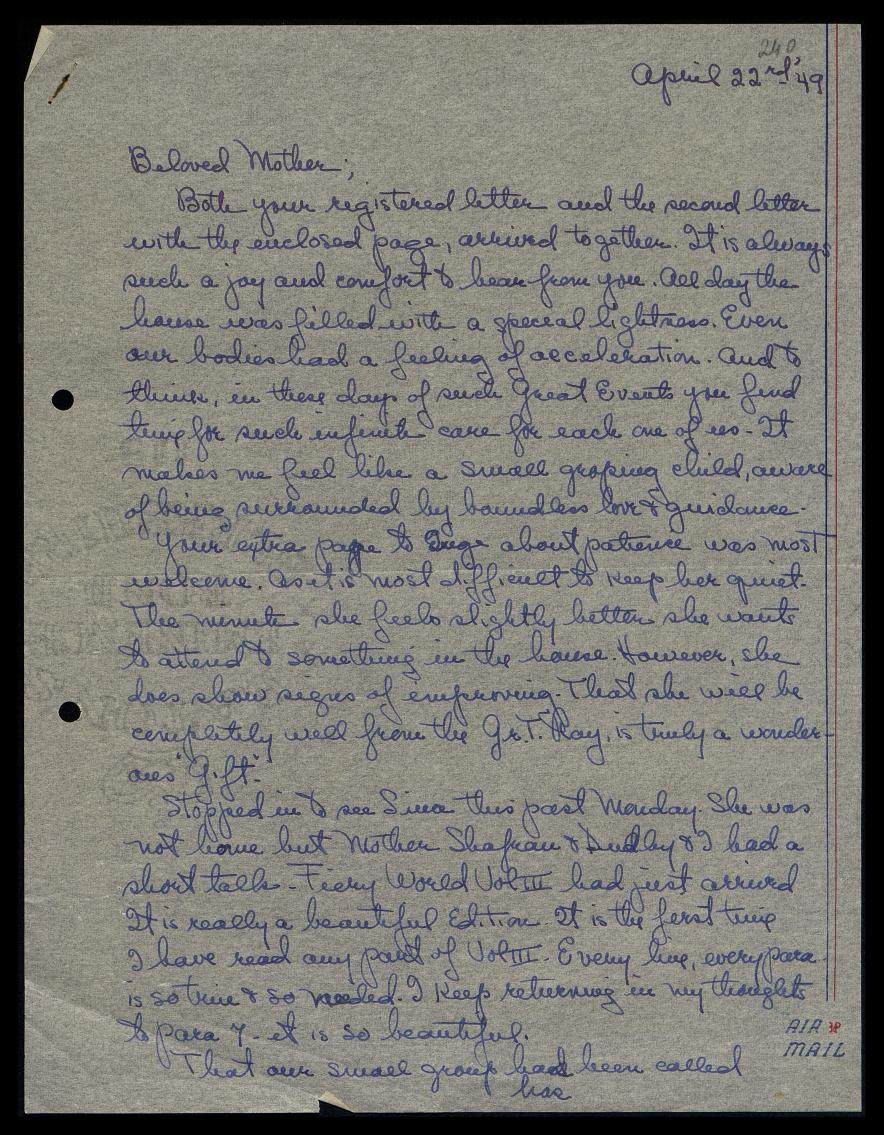 240
April 22nd '49
Beloved Mother;
Both your registered letter and the second letter
with the enclosed page, arrived together. It is always
such a joy and comfort to hear from you. All day the
house was filled with a special lightness. Even
our bodies had a feeling of acceleration. And to
think, in these days of such Great Events you find
time for such infinite care for each one of us - It
makes me feel like a small groping child, aware
of being surrounded by boundless love & guidance.
Your extra page to Inge about patience was most
welcome. As it is most difficult to keep her quiet.
The minute she feels slightly better she wants
to attend to something in the house. However, she
does show signs of improving. That she will be
completely well from the Gr. T. Ray, is truly a wonder-
ous "Gift".
Stopped in to see Sina this past Monday. She was
not home but Mother Shafran & Dudley & I had a
short talk - Fiery World Vol III had just arrived
It is really a beautiful Edition. It is the first time
I have read any part of Vol III. Every line, every para.
is so true & so needed. I keep returning in my thoughts
to para 7 - it is so beautiful.
That our small group had been called
has
AIR
MAIL